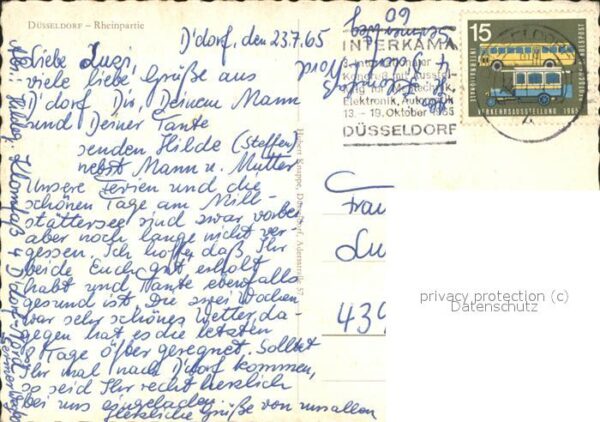 DÜSSELDORF – Rheinpartie
D'dorf, den 23.7.65
Liebe Luzi,
viele liebe Grüße aus
D'dorf Dir, Deinem Mann
und Deiner Tante
senden Hilde (Steffen)
nebst Mann u. Mutter
Unsere Ferien und die
schönen Tage am Mill-
stättersee sind zwar vorbei
aber noch lange nicht ver-
gessen. Ich hoffe, daß Ihr
beide Euch gut erholt
habt und Tante ebenfalls
gesund ist. Die zwei Wochen
war sehr schönes Wetter, da-
gegen hat es die letzten
8 Tage öfter geregnet. Solltet
Ihr mal nach D'dorf kommen,
so seid Ihr recht herzlich
bei uns eingeladen.
Herzliche Grüße von uns allen
INTERKAMA
Elektronik, Automatik
13. – 19. Oktober 1965
DÜSSELDORF
15
DEUTSCHE BUNDESPOST
VERKEHRSAUSSTELLUNG 1965
Frau
Lu
439
privacy protection (c)
Datenschutz